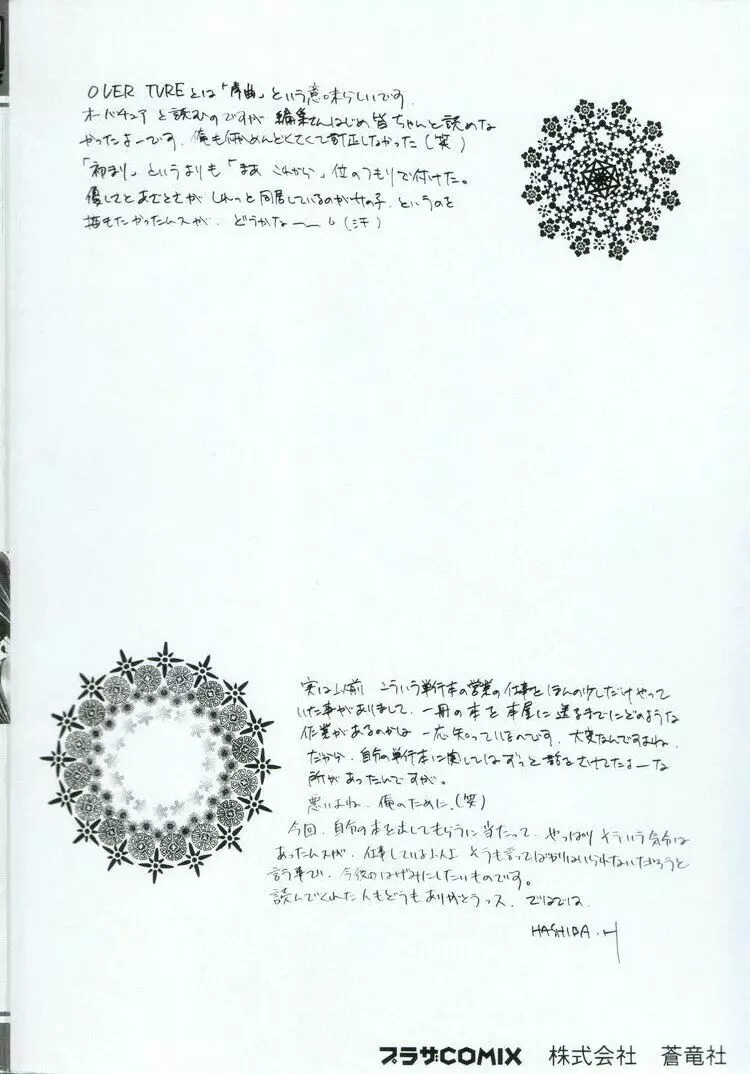 OVER TUREとは「序曲」という意味らしいです。
オーバチュアと読むのですが編集さんはじめ皆ちゃんと読めな
かったよーです。俺も何かめんどくさくて訂正しなかった(笑)
「初まり」というよりも「まあ これから」位のつもりで付けた。
優しさと がしれっと同居しているのが女の子、というのを
描きたかったんスが、どうかなー (汗)
実は以前 こういう単行本の営業の仕事をほんの少しだけやって
いた事がありまして、一冊の本を本屋に送るまでにどのような
作業があるのかは 一応知っているのです。大変なんですよね。
だから、自分の単行本に関してはずっと 避けてたよーな
所があったんですが。
悪いよね、俺のために。(笑)
今回、自分の本を出してもらうに当たって、やっぱりそういう気分は
あったんスが、仕事している以上 そうも言ってばかりはいられないだろうと
言う事で、今後のはげみにしたいものです。
読んでくれた人もどうもありがとうっス、ではでは。
HASHIBA.H
プラザCOMIX 株式会社 蒼竜社